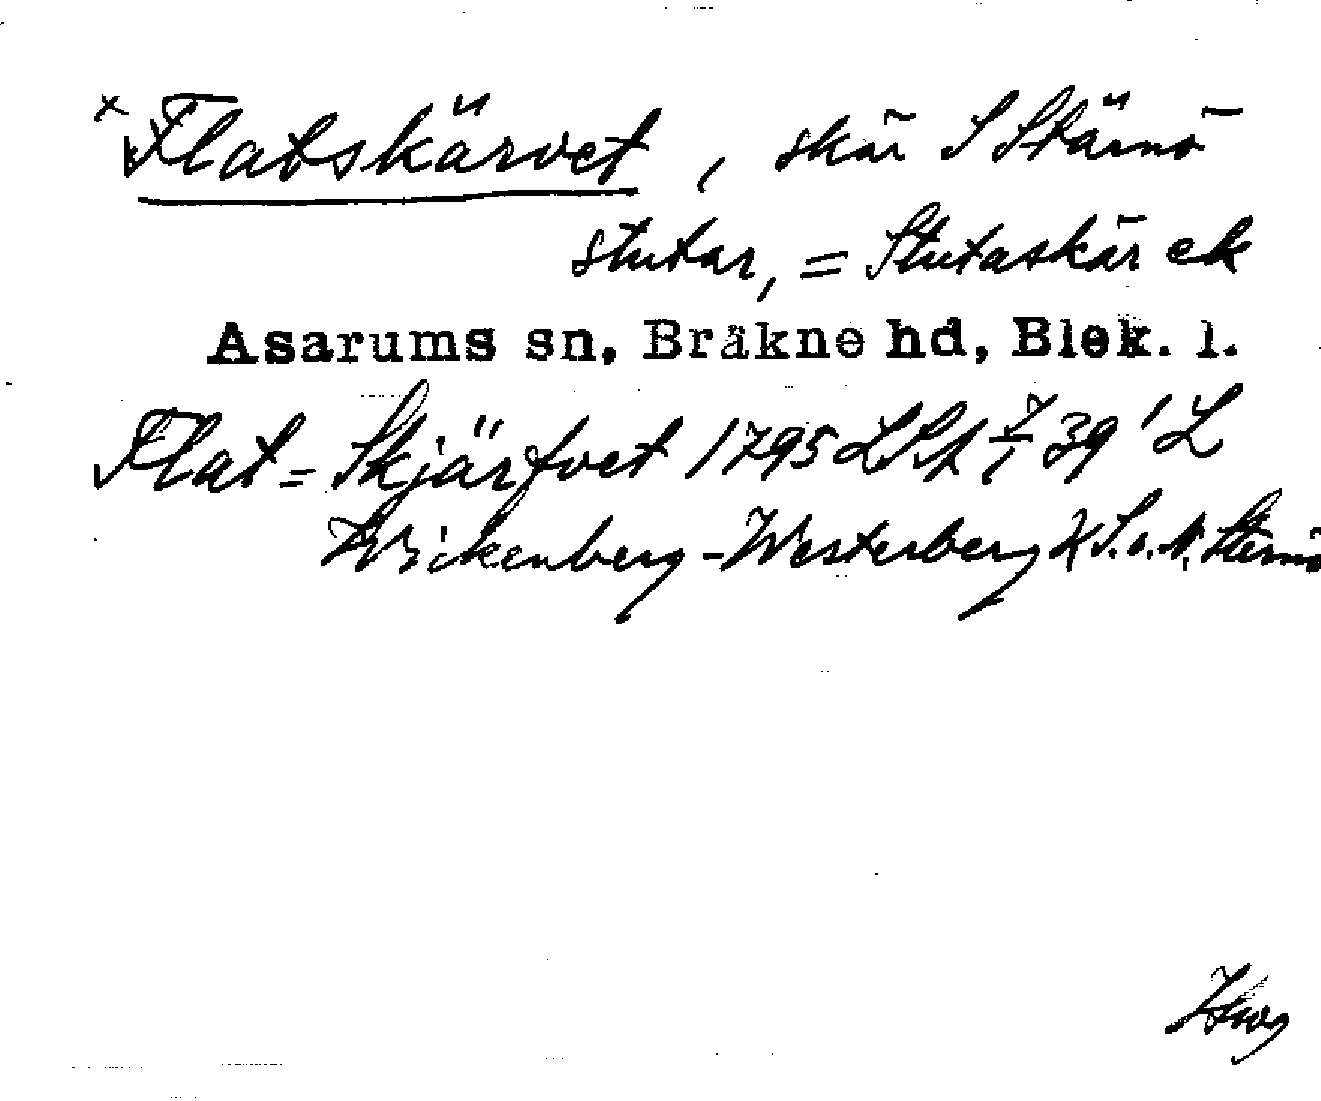 × Flatskärvet, skär S Stärnö
stutar, = Stutaskär ek
Asarums sn, Bräkne hd, Blek. l.
Flat= Skjärfvet 1795 LSA 39 1 L
Wickenberg-Westerberg K S. o. N. Sternö